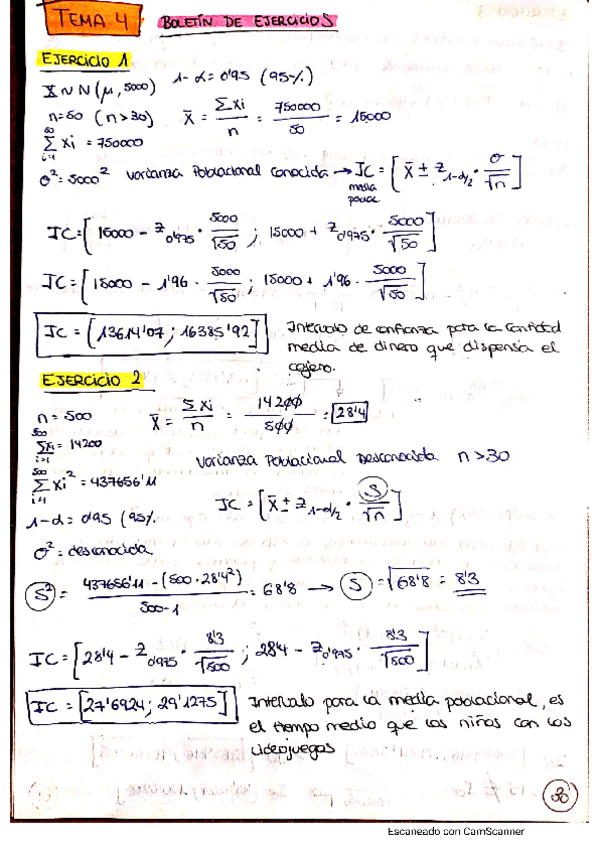 TEMA 4 BOLETÍN DE EJERCICIOS
EJERCICIO 1
X ~ N(μ, 5000) 1-α = 0'95 (95%)
n=50 (n>30) X̄ = Σxi / n = 750000 / 50 = 15000
50 Σ i=1 xi = 750000
σ² = 5000² varianza Poblacional conocida → IC media = [ X̄ ± Z 1-α/2 · σ/√n ]
IC = [ 15000 - Z 0'975 · 5000/√50 ; 15000 + Z 0'975 · 5000/√50 ]
IC = [ 15000 - 1'96 · 5000/√50 ; 15000 + 1'96 · 5000/√50 ]
IC = [13614'07 ; 16385'92] Intervalo de confianza para la cantidad
media de dinero que dispensa el
cajero.
EJERCICIO 2
n = 500 X̄ = Σ xi / n = 14200 / 500 = 28'4
500 Σ i=1 xi = 14200
varianza Poblacional Desconocida n>30
500 Σ i=1 xi² = 437656'11
IC = [ X̄ ± Z 1-α/2 · S/√n ]
1-α = 0'95 (95%
σ² = desconocida
S² = 437656'11 - (500 · 28'4²) / 500-1 = 68'8 → S = √68'8 = 8'3
IC = [ 28'4 - Z 0'975 · 8'3/√500 ; 28'4 - Z 0'975 · 8'3/√500 ]
IC = [27'6924 ; 29'1275] Intervalo para la media poblacional, es
el tiempo medio que los niños con los
videojuegos
30
Escaneado con CamScanner